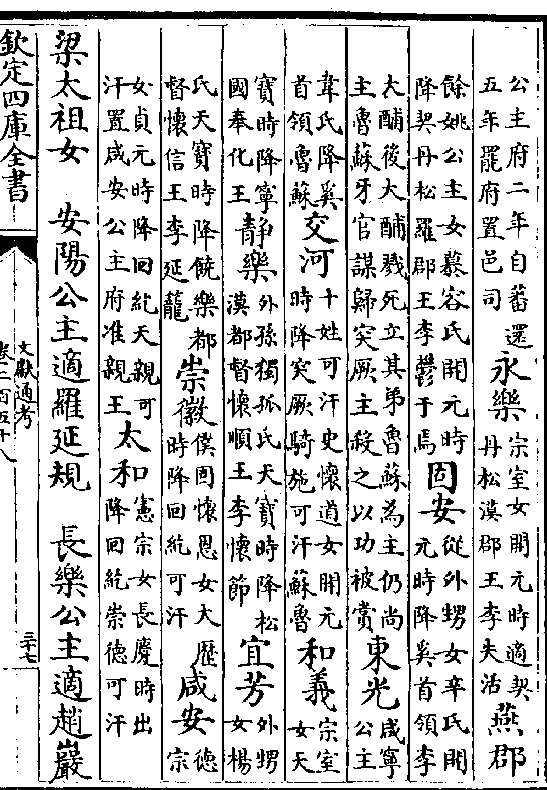 公主府二年自蕃還五年罷府置邑司 永樂宗室女開元時適契丹松漠郡王李失活 燕郡
餘姚公主女慕容氏開元時降契丹松羅郡王李鬱于焉 固安從外甥女辛氏開元時降奚首領李
大酺後大酺戮死立其弟魯蘇為主仍尚主魯蘇牙官謀歸突厥主殺之以功被賞 東光咸寧公主
韋氏降奚首領魯蘇 交河十姓可汗史懷道女開元時降突厥騎施可汗蘇魯 和義宗室女天
寶時降寧國奉化王 靜樂外孫獨孤氏天寶時降松漠都督懷順王李懷節 宜芳外甥女楊
氏天寶時降饒樂都督懷信王李延寵 崇徽僕固懷恩女大歷時降回紇可汗 咸安德宗
女貞元時降回紇天親可汗置咸安公主府准親王 太和憲宗女長慶時出降回紇崇德可汗
梁太祖女 安陽公主適羅延規 長樂公主適趙巖
欽定四庫全書 文獻通考 卷二百五十八 三十七